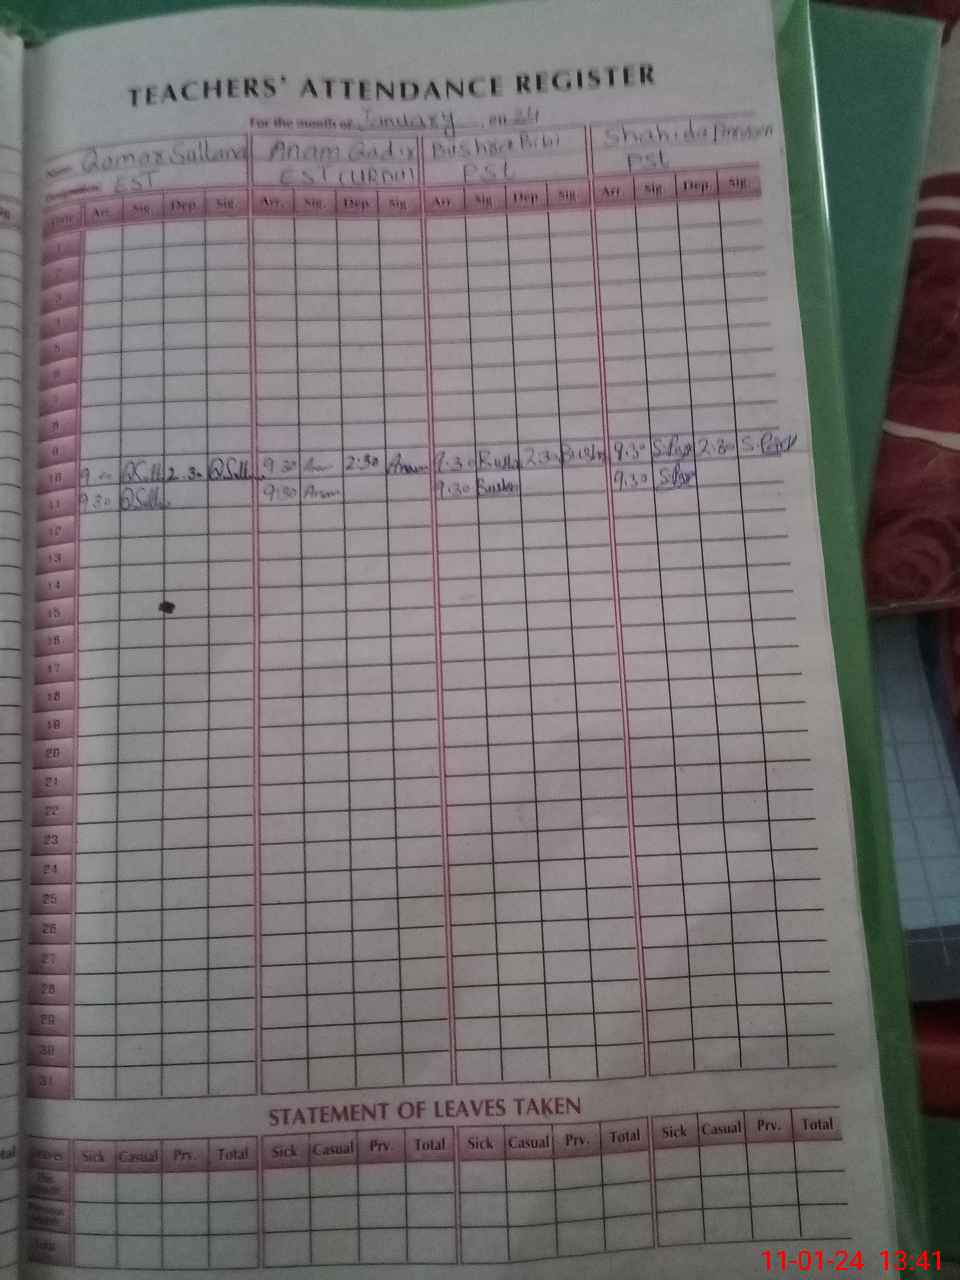 TEACHERS' ATTENDANCE REGISTER
For the month of January 24
Name Qamar Sultana Anam Qadir Bushra Bibi Shahida Parveen
EST EST (URDU) PST PST
Arr. Sig. Dep. Sig. Arr. Sig. Dep. Sig. Arr. Sig. Dep. Sig. Arr. Sig. Dep. Sig.
1
2
3
4
5
6
7
8
9
10 Q Sult 2.30 Q Sult 9 30 Anam 2:30 Anam 9.30 Bushra 2.30 Bushra 9.30 2.30
11 9 30 Q Sult 9:30 Anam 9.30 Bushra 9.30
12
13
14
15
16
17
18
19
20
21
22
23
24
25
26
27
28
29
30
31
STATEMENT OF LEAVES TAKEN
Leaves Sick Casual Prv. Total Sick Casual Prv. Total Sick Casual Prv. Total Sick Casual Prv. Total
11-01-24 13:41